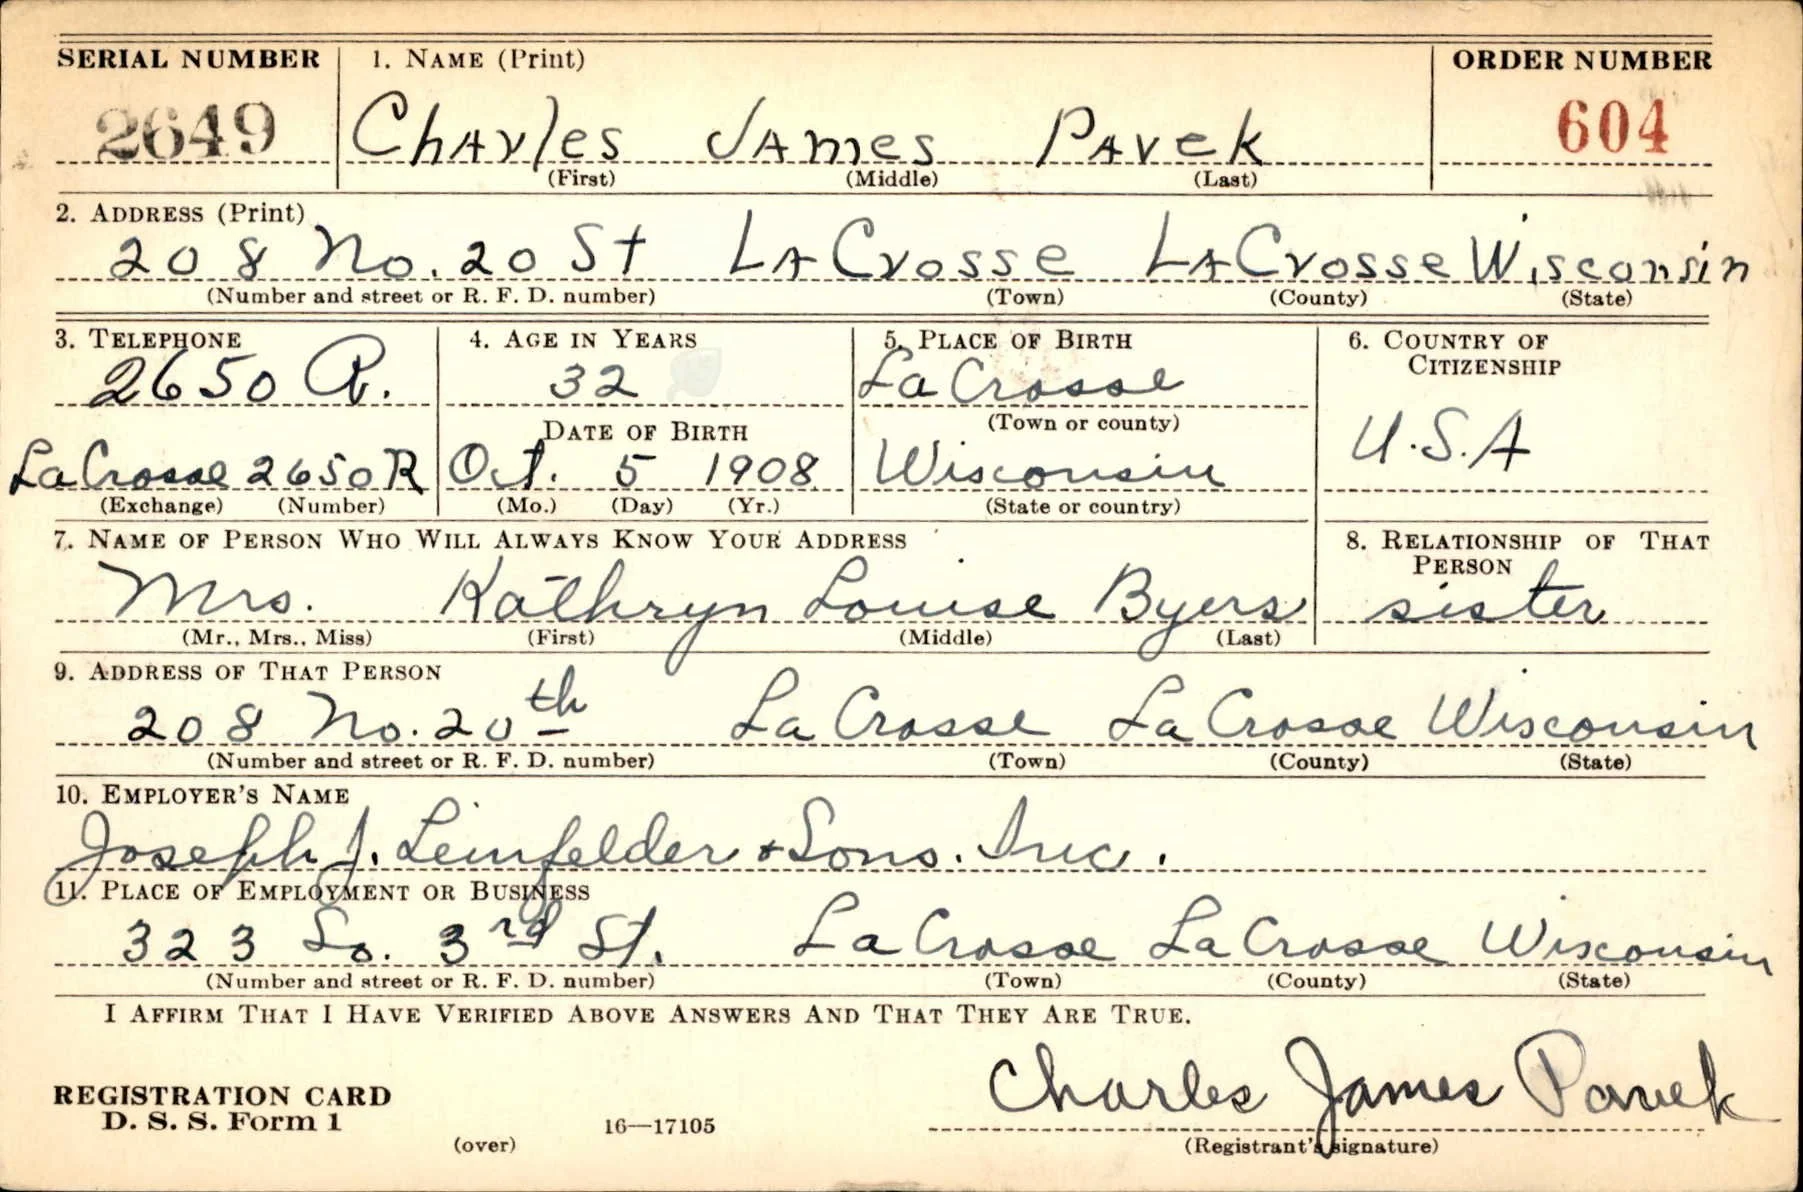 SERIAL NUMBER 1. NAME (Print) ORDER NUMBER
2649 Charles James Pavek 604
(First) (Middle) (Last)
2. ADDRESS (Print)
208 No. 20 St LaCrosse LaCrosse Wisconsin
(Number and street or R. F. D. number) (Town) (County) (State)
3. TELEPHONE 4. AGE IN YEARS 5. PLACE OF BIRTH 6. COUNTRY OF CITIZENSHIP
2650 R. 32 La Crosse
DATE OF BIRTH (Town or county) U.S.A
La Crosse 2650R Oct. 5 1908 Wisconsin
(Exchange) (Number) (Mo.) (Day) (Yr.) (State or country)
7. NAME OF PERSON WHO WILL ALWAYS KNOW YOUR ADDRESS 8. RELATIONSHIP OF THAT PERSON
Mrs. Kathryn Louise Byers sister
(Mr., Mrs., Miss) (First) (Middle) (Last)
9. ADDRESS OF THAT PERSON
208 No. 20th La Crosse La Crosse Wisconsin
(Number and street or R. F. D. number) (Town) (County) (State)
10. EMPLOYER'S NAME
Joseph J. Leinfelder & Sons. Inc.
11. PLACE OF EMPLOYMENT OR BUSINESS
323 So. 3rd St. La Crosse La Crosse Wisconsin
(Number and street or R. F. D. number) (Town) (County) (State)
I AFFIRM THAT I HAVE VERIFIED ABOVE ANSWERS AND THAT THEY ARE TRUE.
Charles James Pavek
REGISTRATION CARD
D. S. S. Form 1 16—17105
(over) (Registrant's signature)